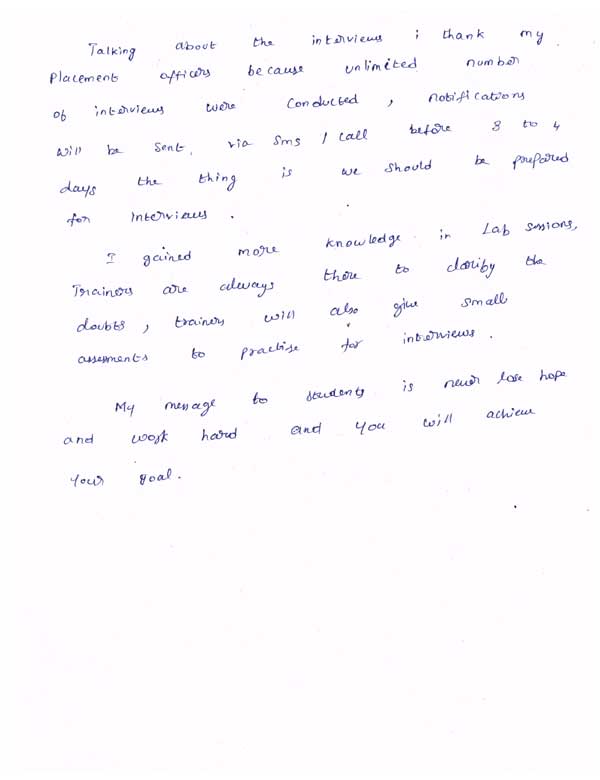 Talking about the interviews i thank my
Placement officers because unlimited number
of interviews were conducted, notifications
will be sent. via sms / call before 3 to 4
days the thing is we should be prepared
for interviews.
I gained more knowledge in Lab sessions,
Trainers are always there to clarify the
doubts, trainers will also give small
assessments to practise for interviews.
My message to students is never lose hope
and work hard and you will achieve
your goal.